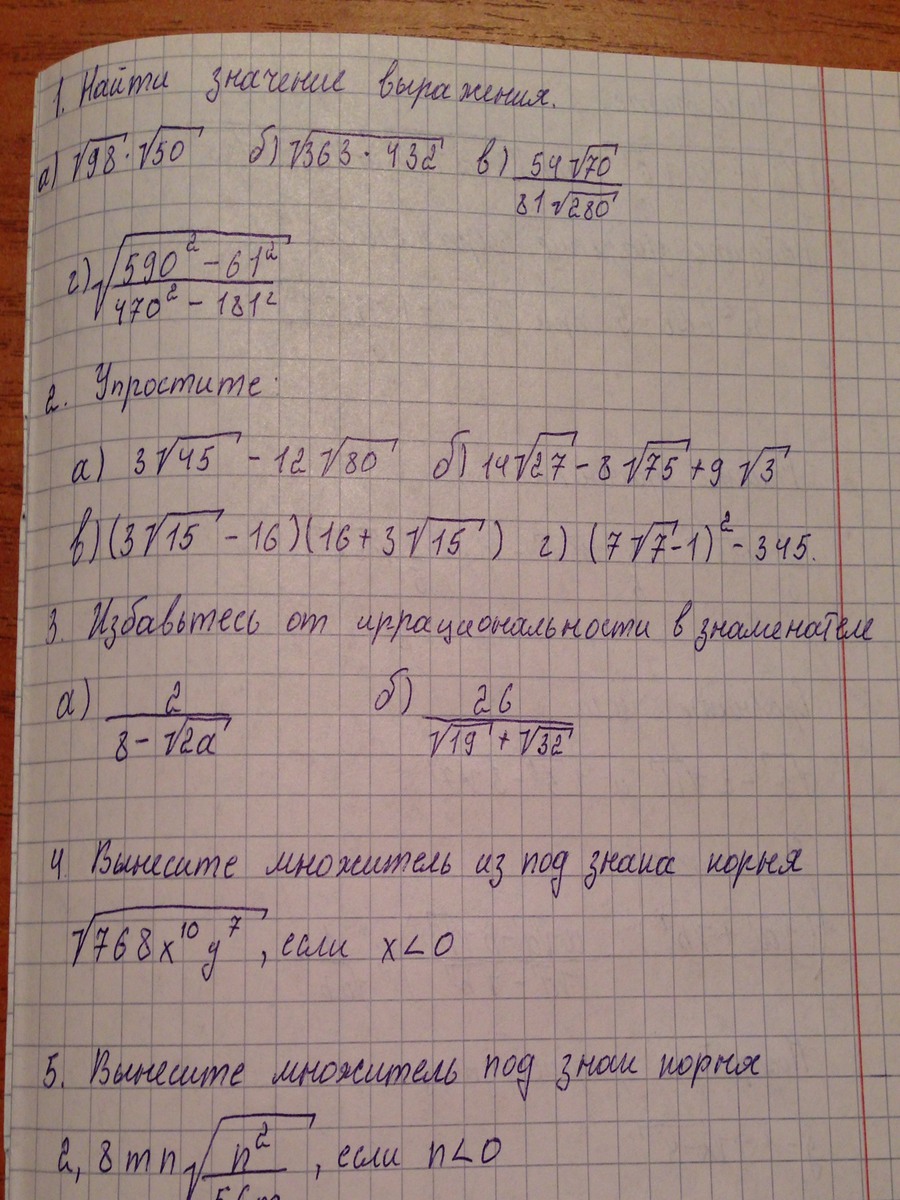 1. Найти значение выражения.
а) √98 · √50 б) √363 · 432 в) 54√70 / 81√280
г) √(590² - 61² / 470² - 181²)
2. Упростите:
а) 3√45 - 12√80 б) 14√27 - 8√75 + 9√3
в) (3√15 - 16)(16 + 3√15) г) (7√7 - 1)² - 345.
3. Избавьтесь от иррациональности в знаменателе
а) 2 / 8 - √2а б) 26 / √19 + √32
4. Вынесите множитель из под знака корня
√768x¹⁰y⁷, если x<0
5. Вынесите множитель под знак корня
2,8mn√(n² / 56m), если n<0